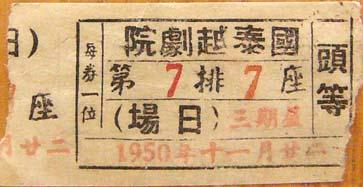 頭等
國泰越劇院
第7排7座
(日場)
星期三
1950年十一月廿二
每券一位
日)
座
月廿二